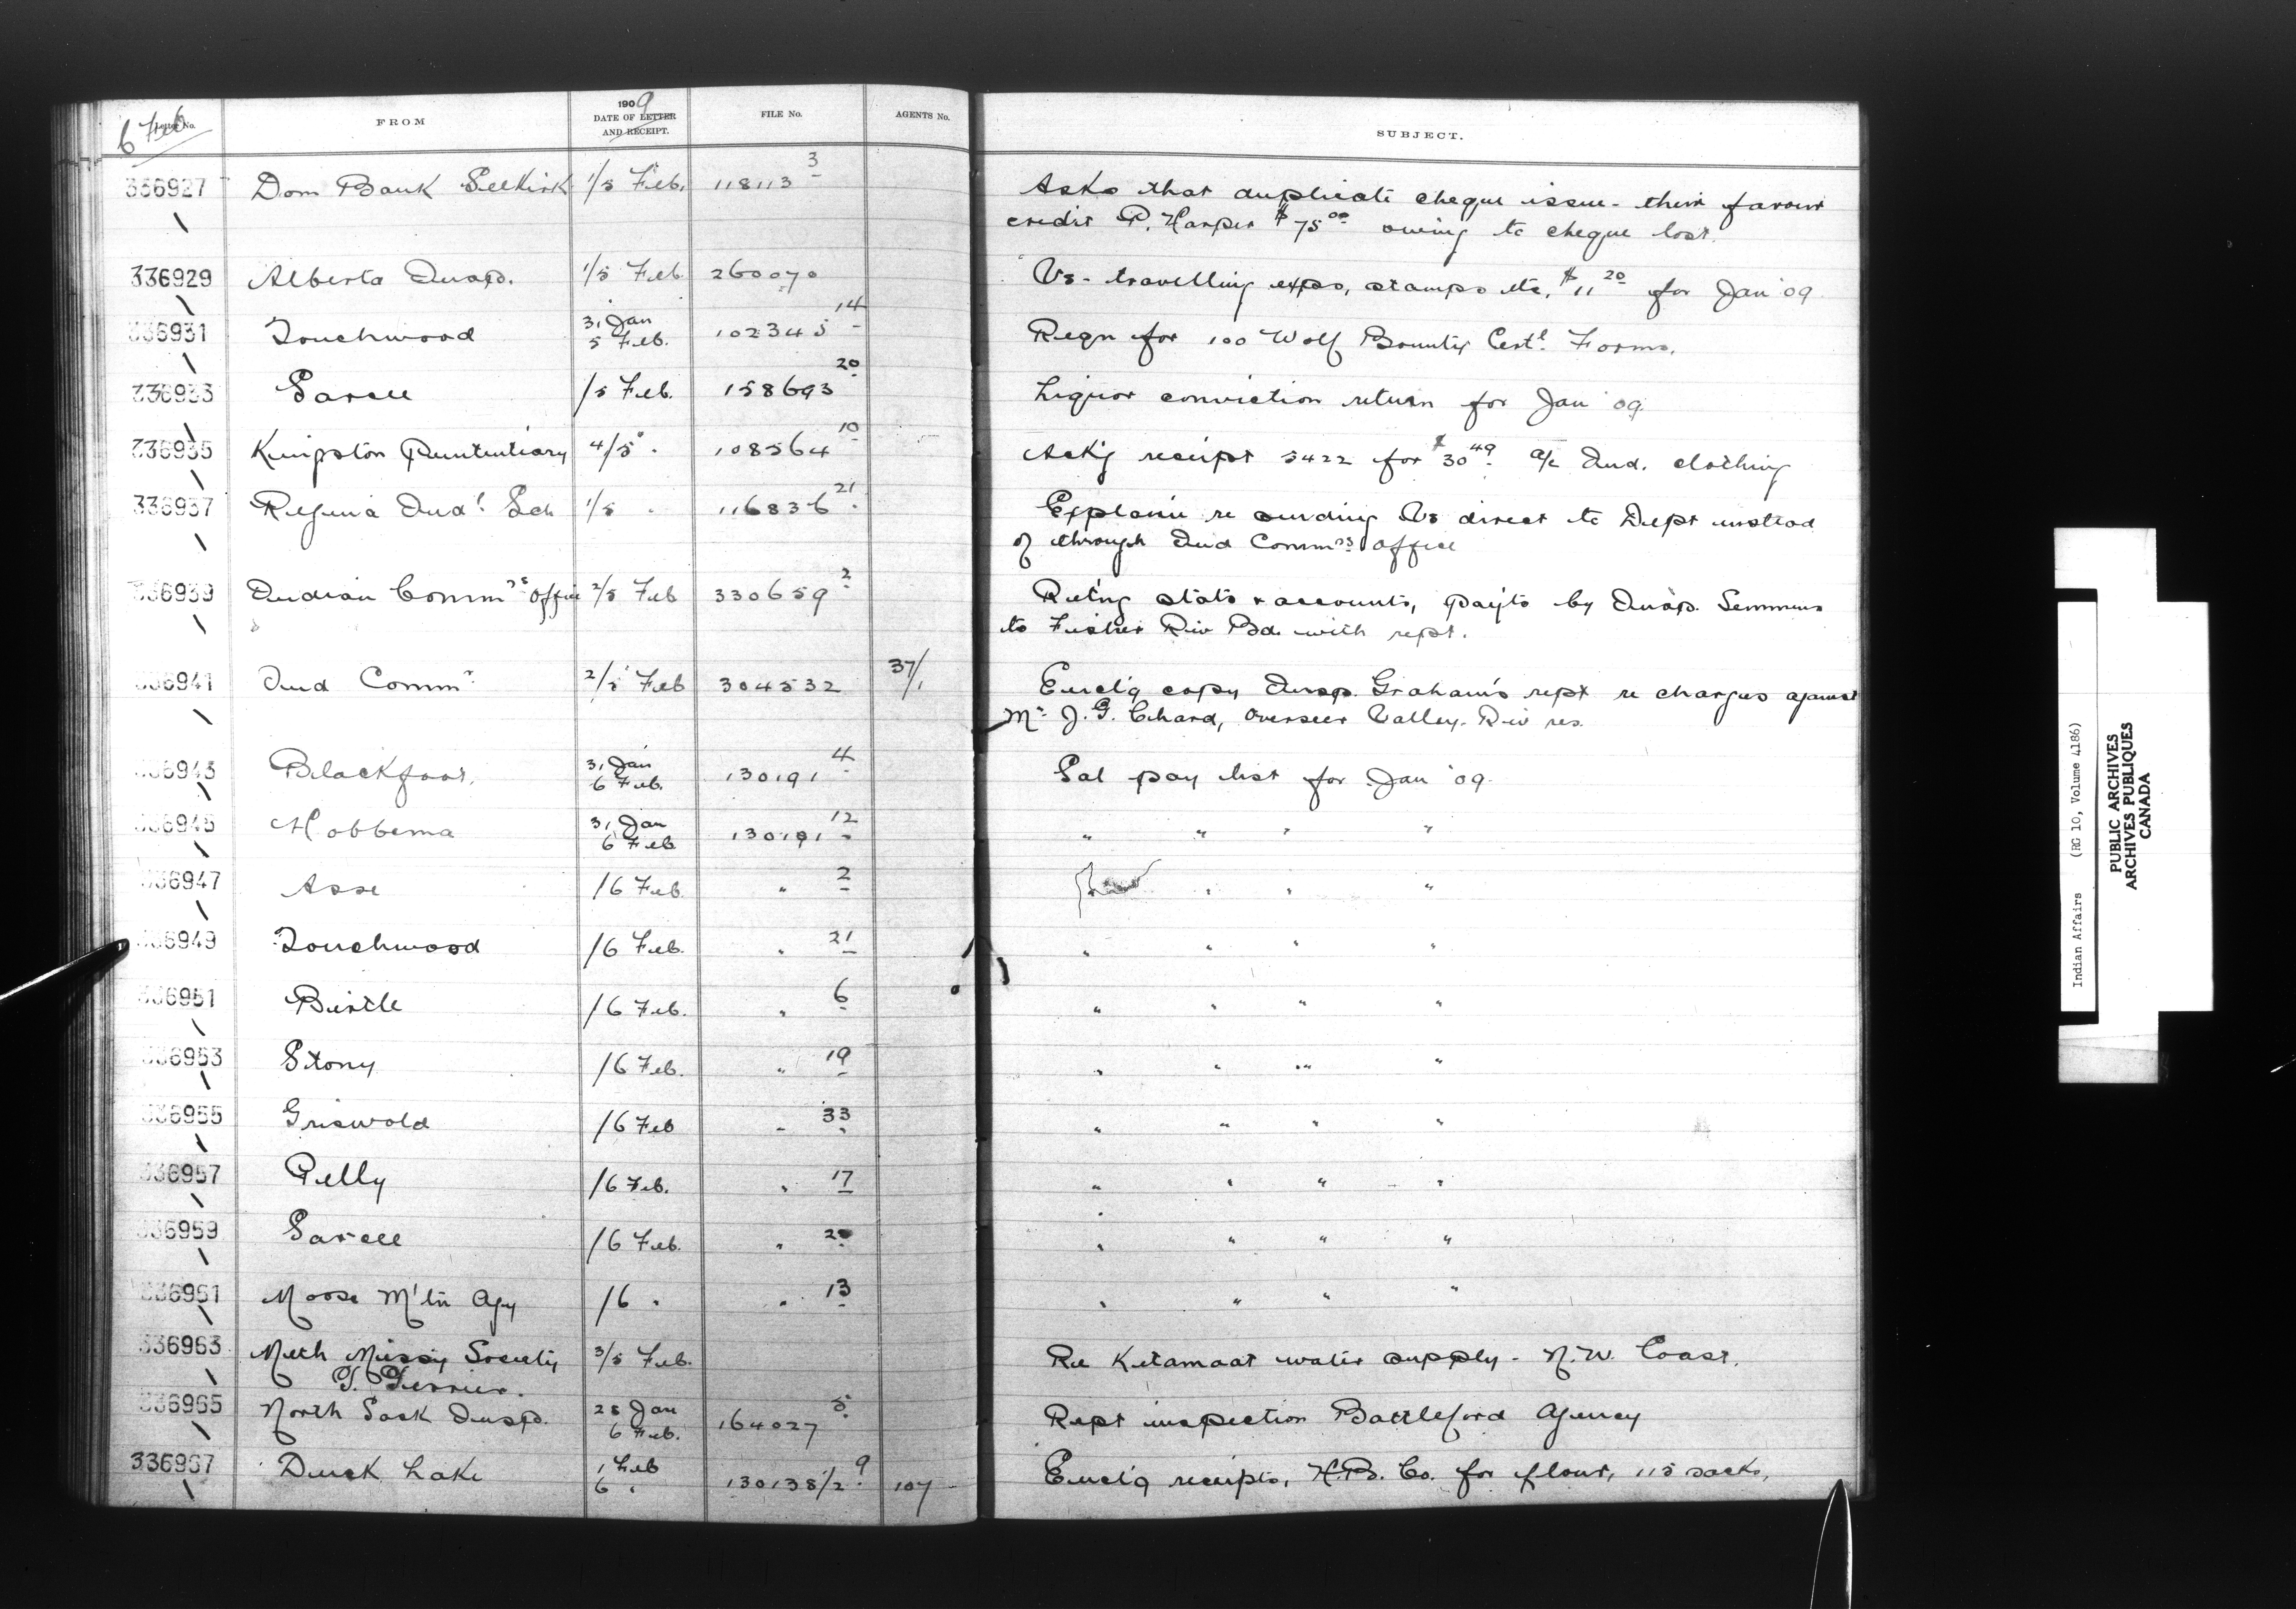 6 Feb
Letter No. FROM 1909 DATE OF LETTER AND RECEIPT. FILE No. AGENTS No. SUBJECT.
336927 Dom Bank Selkirk 1/5 Feb. 118113 3 Asks that duplicate cheque issue - their favour
credit P. Harper $75 00 owing to cheque lost.
336929 Alberta Insp. 1/5 Feb 260070 Vs - travelling exps, stamps etc, $11 20 for Jan '09
336931 Touchwood 31 Jan 5 Feb. 102345 14 Reqn for 100 Wolf Bounty Cert. Forms.
336933 Sarcee /5 Feb. 158693 20 Liquor conviction return for Jan '09.
336935 Kingston Penitentiary 4/5 " 108564 10 Ack'g receipt 5422 for $30 49. a/c Ind. clothing
336937 Regina Indl. Sch 1/5 " 116836 21 Explain re sending Vs direct to Dept instead
of through Ind Commrs office
336939 Indian Commrs Office 2/5 Feb 330659 2 Ret'ng stats & accounts, pay'ts by Insp. Semmens
to Fisher Riv Bd. with rept.
336941 Ind Commr 2/5 Feb 304532 37/1 Encl'g copy Insp. Graham's rept re charges against
Mr. J. G. Chard, Overseer Valley Riv res.
336943 Blackfoot. 31 Jan 6 Feb. 130191 4 Sal pay list for Jan '09.
336945 Hobbema 31 Jan 6 Feb 130191 12 " " " "
336947 Asse /6 Feb. " 2 " " "
336949 Touchwood /6 Feb. " 21 " " " "
336951 Birtle /6 Feb. " 6 " " " "
336953 Stony /6 Feb. " 19 " " " "
336955 Griswold /6 Feb " 33 " " " "
336957 Pelly /6 Feb. " 17 " " " "
336959 Sarcee /6 Feb. " 20 " " " "
336961 Moose M'tn Agy /6 " " 13 " " " "
336963 Meth Missy Society 3/5 Feb. Re Kitamaat water supply - N.W. Coast.
T. Ferrier.
336965 North Sask Insp. 28 Jan 6 Feb. 164027 5 Rept inspection Battleford Agency
336967 Duck Lake 1 Feb 6 " 130138/2 9 107 Encl'g receipts, H.B. Co. for flour, 115 sacks,
Indian Affairs (RG 10, Volume 4186)
PUBLIC ARCHIVES
ARCHIVES PUBLIQUES
CANADA